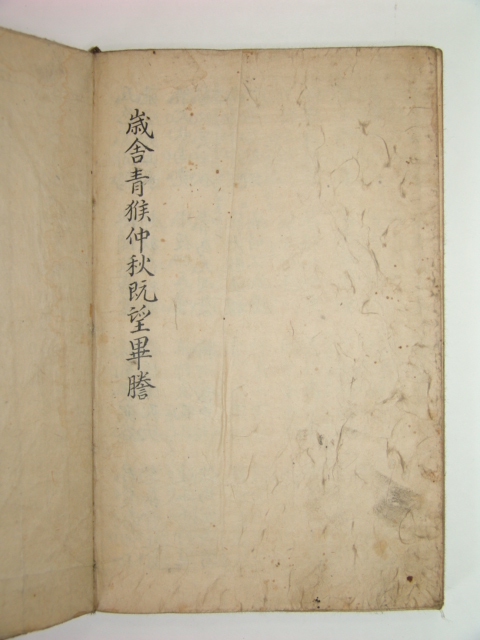 歲舍青猴仲秋旣望畢謄